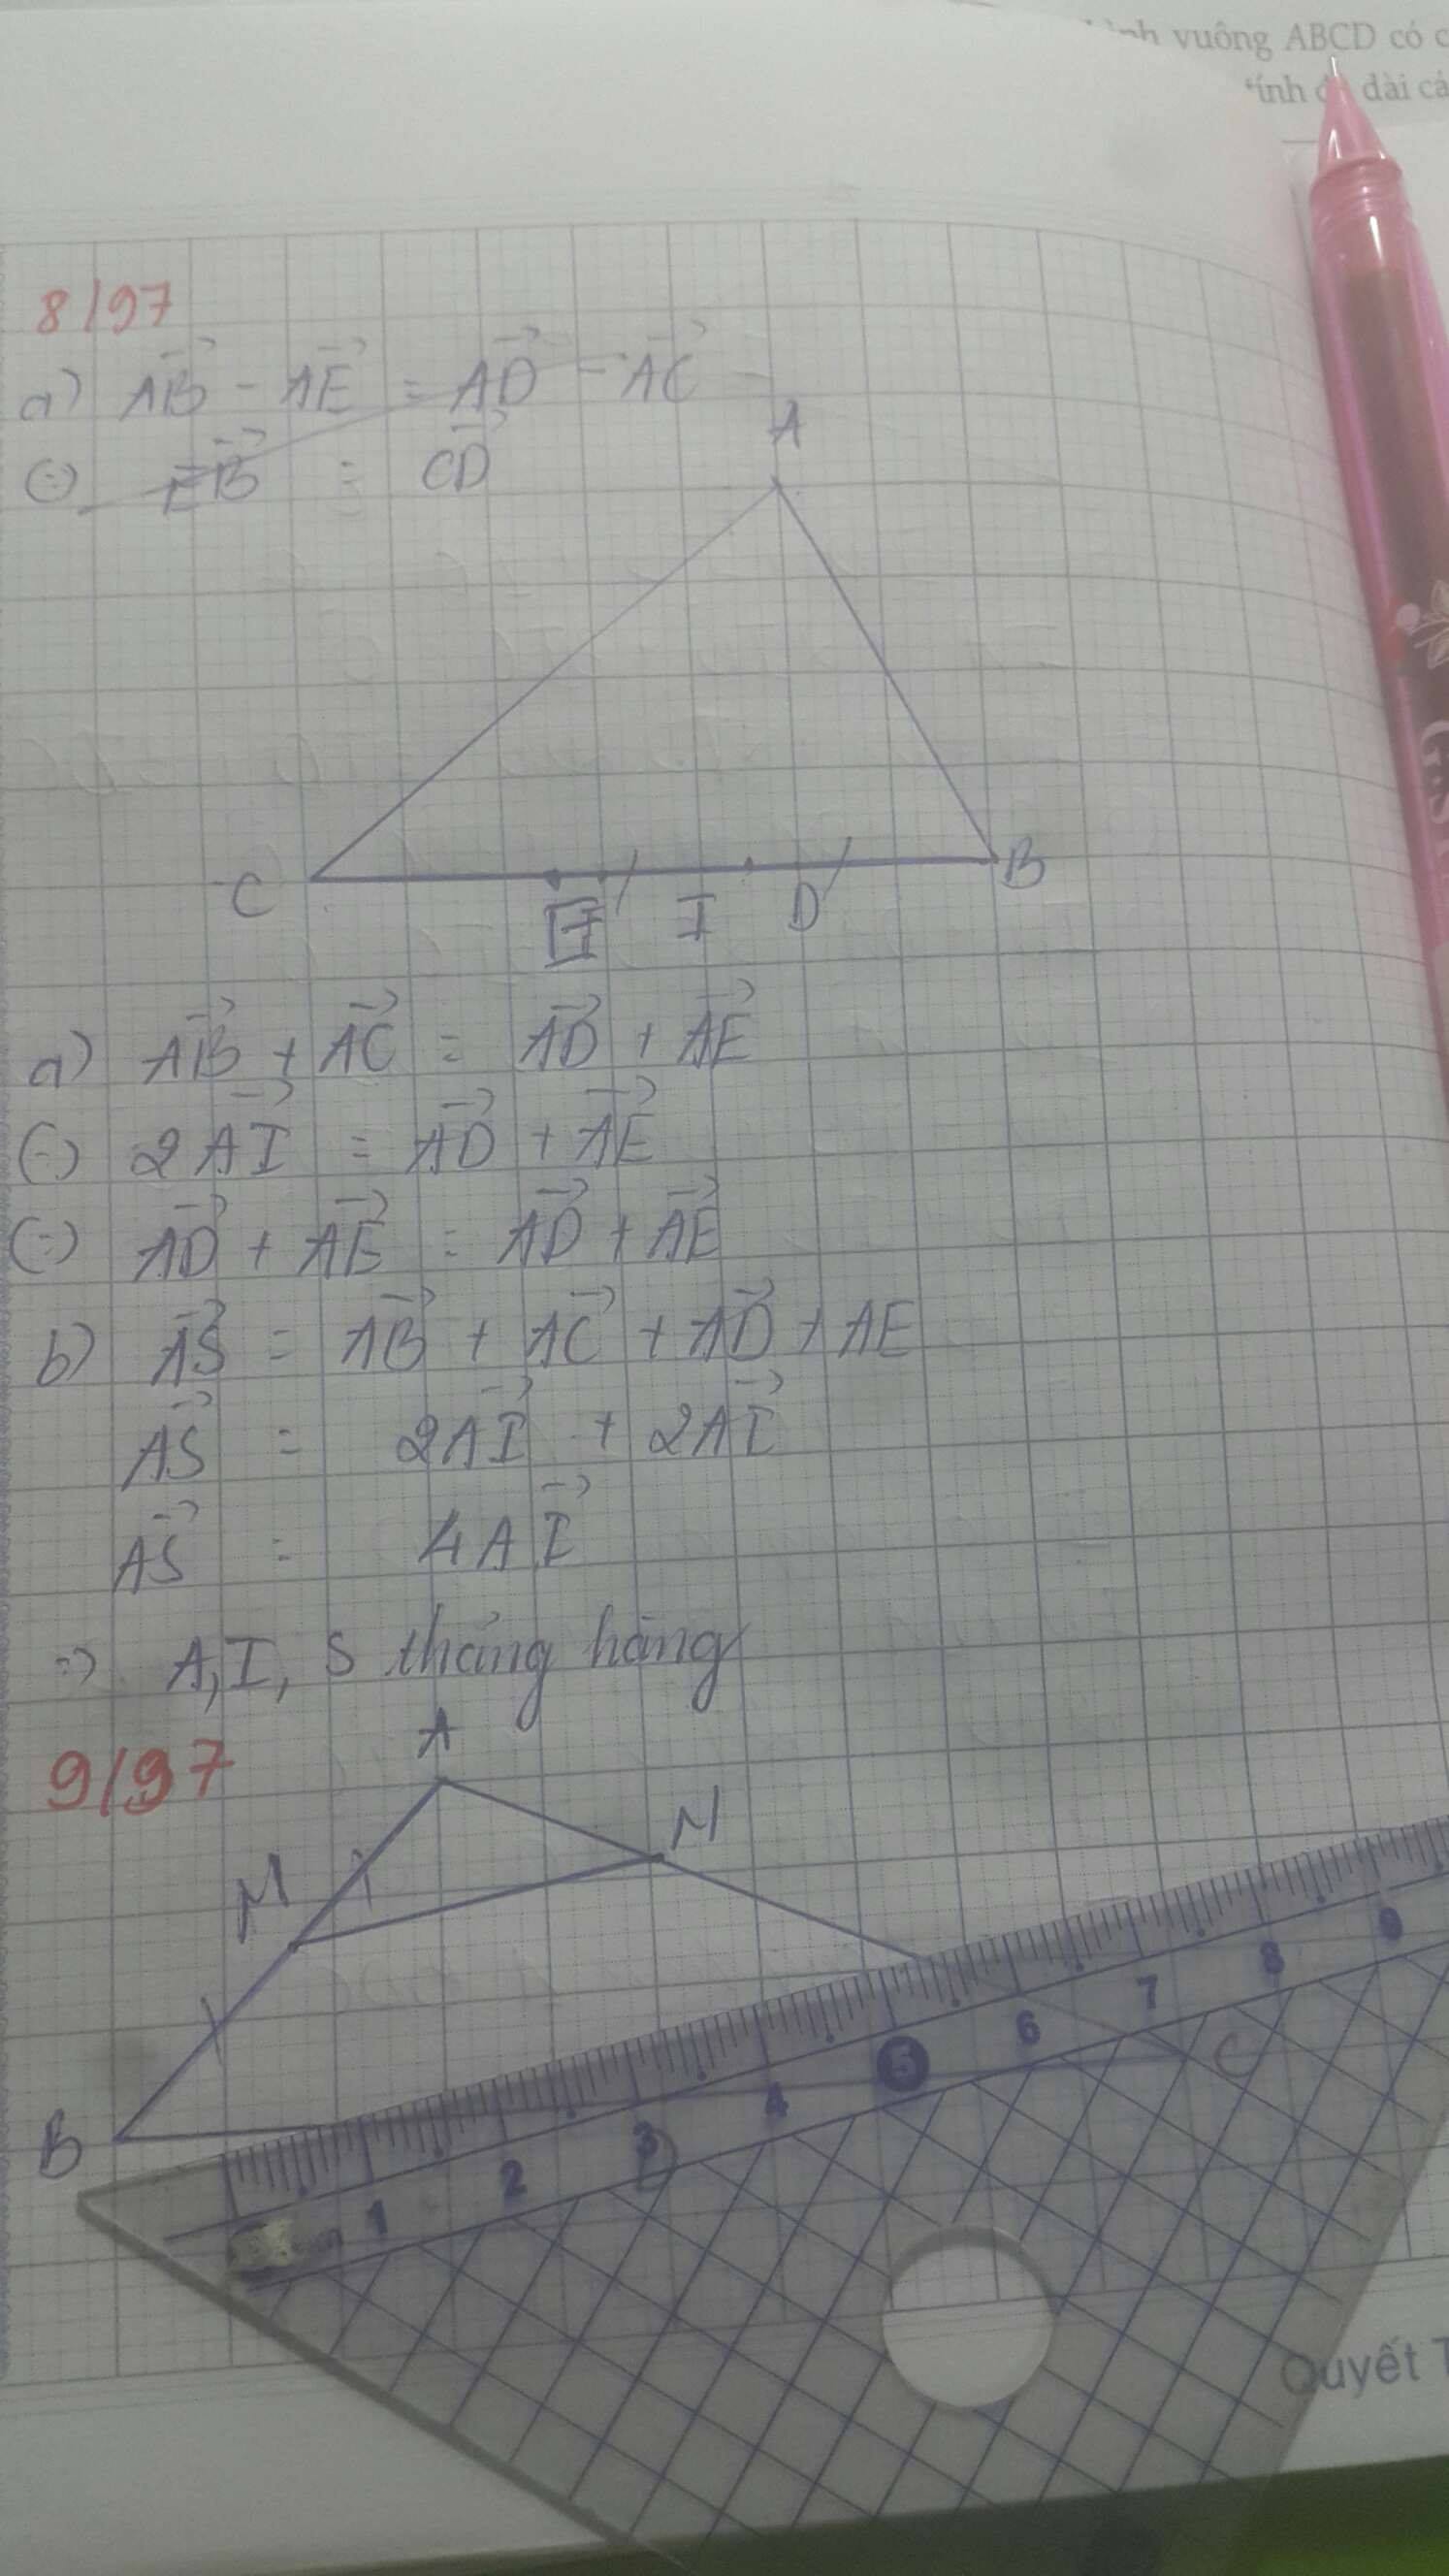 vuông ABCD có c
dài cá
8/97
a) AB→ - AE→ = AD→ - AC→
(=) EB→ = CD→
A
C
E
I
D
B
a) AB→ + AC→ = AD→ + AE→
(=) 2AI→ = AD→ + AE→
(=) AD→ + AE→ = AD→ + AE→
b) AS→ = AB→ + AC→ + AD→ + AE
AS→ = 2AI→ + 2AI→
AS→ = 4AI→
=> A, I, S thẳng hàng
9/97
A
M
N
B
C
1 2 3 4 5 6 7 8 9
D
Quyết T